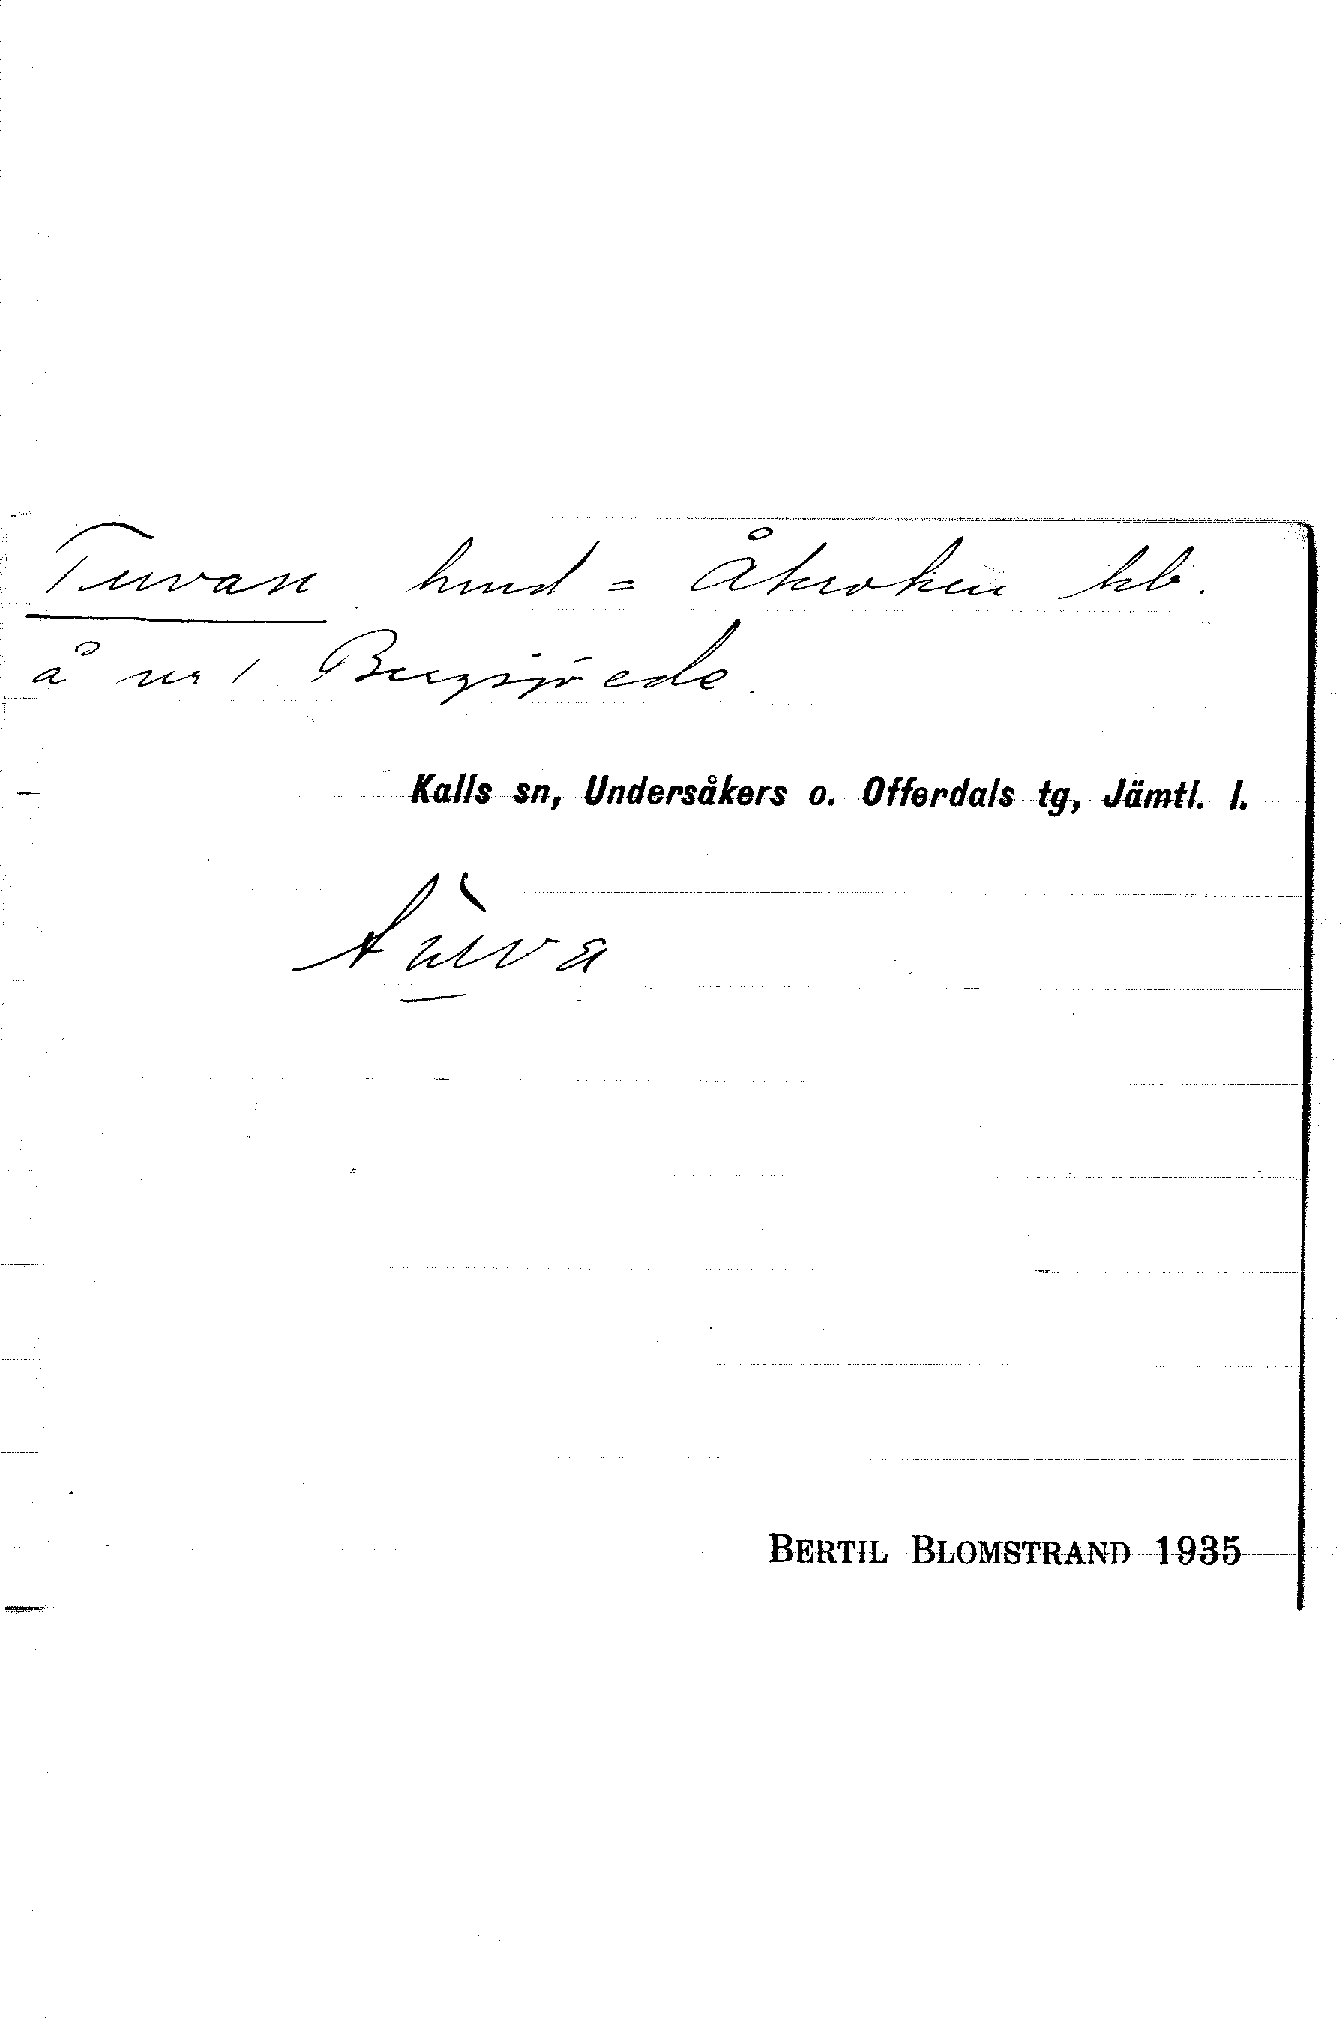 Tuvan hmd = Åkroken kb.
å nr 1 Bergsjöedet.
Kalls sn, Undersåkers o. Offerdals tg, Jämtl. l.
BERTIL BLOMSTRAND 1935